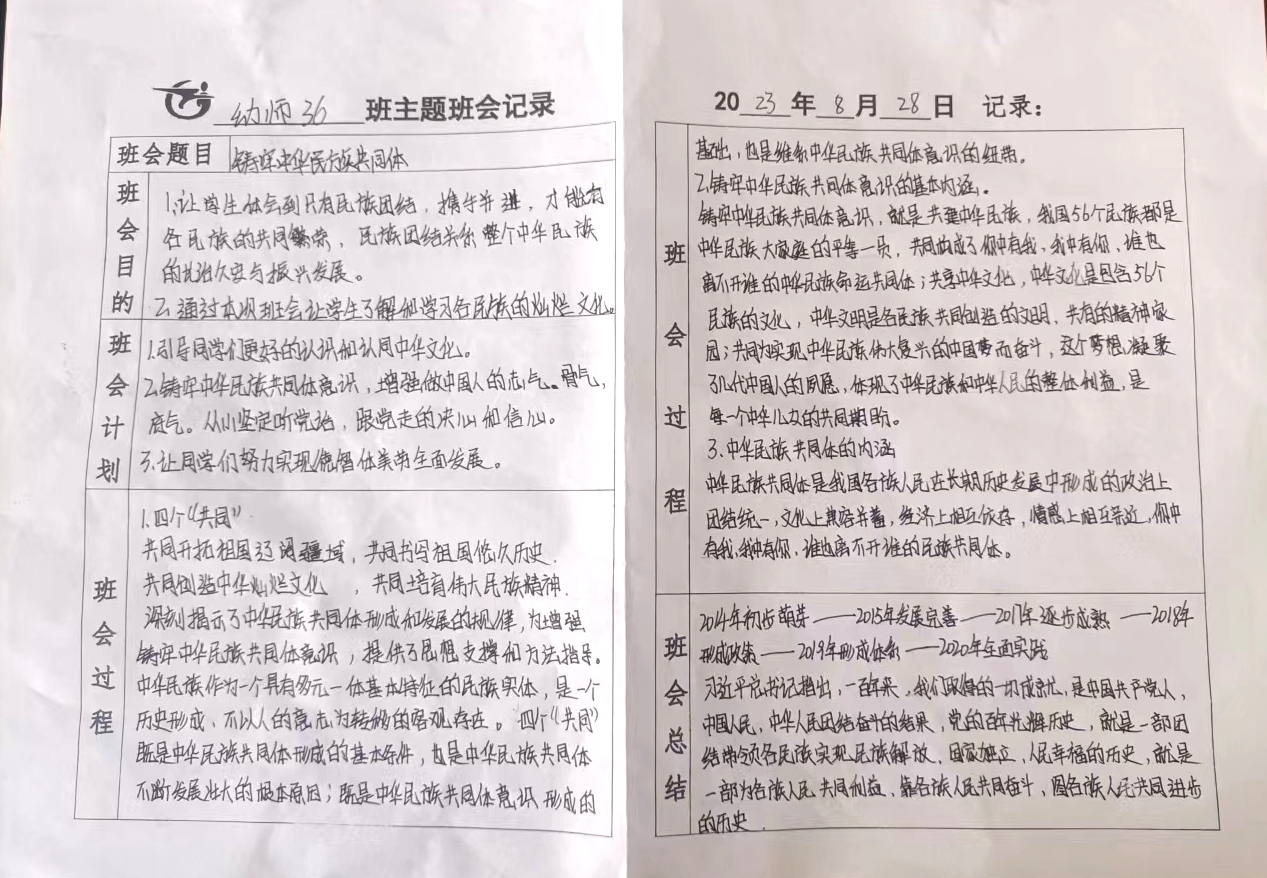 幼师36 班主题班会记录
班会题目 铸牢中华民族共同体
班会目的
1.让学生体会到只有民族团结，携手并进，才能有
各民族的共同繁荣，民族团结关系整个中华民族
的长治久安与振兴发展。
2.通过本次班会让学生了解和学习各民族的灿烂文化。
班会计划
1.引导同学们更好的认识和认同中华文化。
2.铸牢中华民族共同体意识，增强做中国人的志气。骨气，
底气。从小坚定听党话，跟党走的决心和信心。
3.让同学们努力实现德智体美劳全面发展。
班会过程
1.四个"共同"
共同开拓祖国辽阔疆域，共同书写祖国悠久历史.
共同创造中华灿烂文化 ，共同培育伟大民族精神.
深刻揭示了中华民族共同体形成和发展的规律，为增强
铸牢中华民族共同体意识，提供了思想支撑和方法指导。
中华民族作为一个具有多元一体基本特征的民族实体，是一个
历史形成、不以人的意志为转移的客观存在。四个"共同"
既是中华民族共同体形成的基本条件，也是中华民族共同体
不断发展壮大的根本原因；既是中华民族共同体意识形成的
2023年8月28日 记录：
班会过程
基础，也是维系中华民族共同体意识的纽带。
2.铸牢中华民族共同体意识的基本内涵。
铸牢中华民族共同体意识，就是共建中华民族，我国56个民族都是
中华民族大家庭的平等一员，共同构成了你中有我、我中有你、谁也
离不开谁的中华民族命运共同体；共享中华文化，中华文化是包含56个
民族的文化，中华文明是各民族共同创造的文明、共有的精神家
园；共同为实现中华民族伟大复兴的中国梦而奋斗，这个梦想凝聚
了几代中国人的夙愿，体现了中华民族和中华人民的整体利益，是
每一个中华儿女的共同期盼。
3.中华民族共同体的内涵
中华民族共同体是我国各族人民在长期历史发展中形成的政治上
团结统一，文化上兼容并蓄，经济上相互依存，情感上相互亲近，你中
有我，我中有你，谁也离不开谁的民族共同体。
班会总结
2014年初步萌芽——2015年发展完善——2017年逐步成熟——2018年
形成政策——2019年形成体系——2020年全面实践
习近平总书记指出，一百年来，我们取得的一切成就，是中国共产党人，
中国人民，中华人民团结奋斗的结果，党的百年光辉历史，就是一部团
结带领各民族实现民族解放、国家独立、人民幸福的历史，就是
一部为各族人民共同利益、靠各族人民共同奋斗，图各族人民共同进步
的历史.